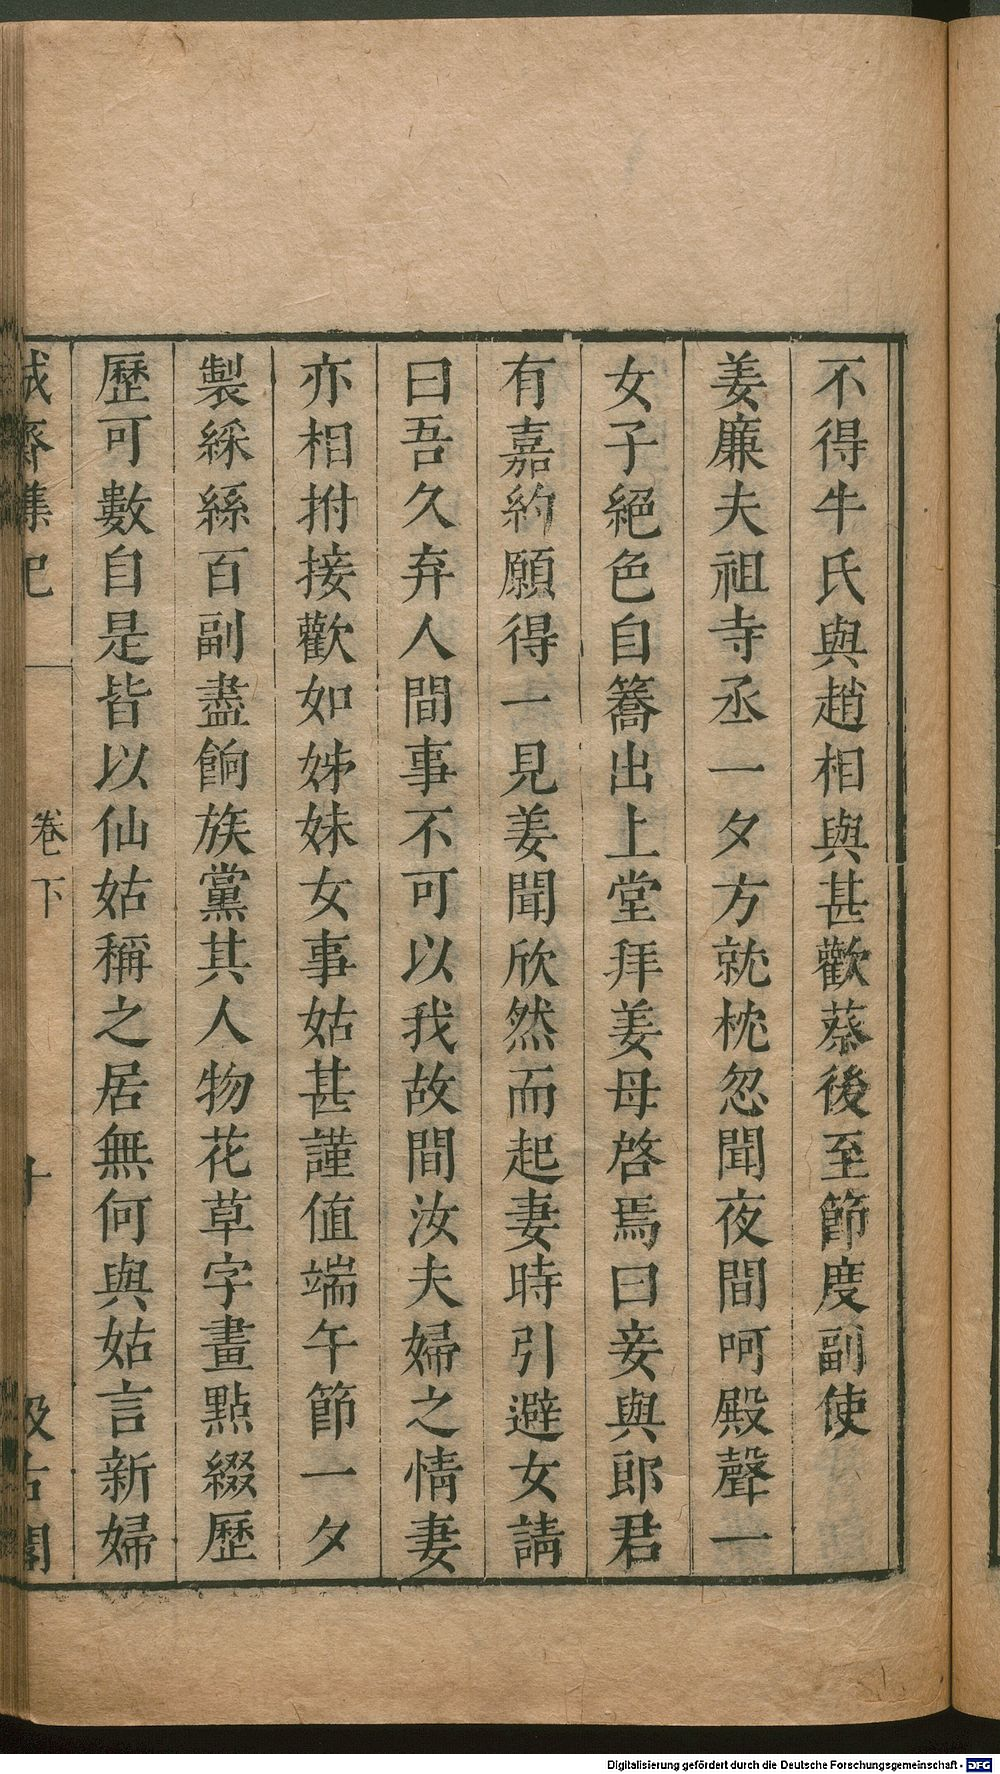 不得牛氏與趙相與甚歡蔡後至節度副使
姜廉夫祖寺丞一夕方就枕忽聞夜間呵殿聲一
女子絕色自簥出上堂拜姜母啓焉曰妾與郎君
有嘉約願得一見姜聞欣然而起妻時引避女請
曰吾久弃人間事不可以我故間汝夫婦之情妻
亦相拊接歡如姊妹女事姑甚謹値端午節一夕
製綵絲百副盡餉族黨其人物花草字畫點綴歷
歷可數自是皆以仙姑稱之居無何與姑言新婦
誠齋雜記
卷下
十
汲古閣
Digitalisierung gefördert durch die Deutsche Forschungsgemeinschaft - DFG